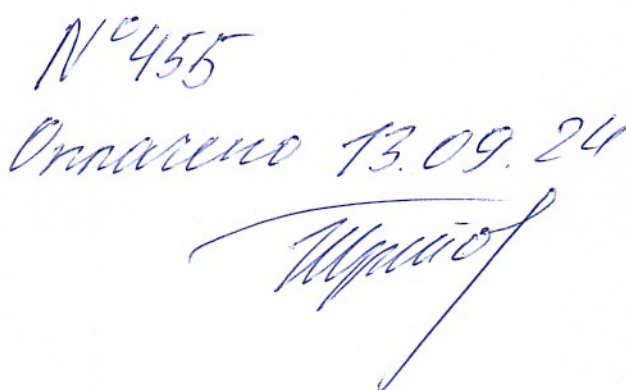 № 455
Оплачено 13.09.24